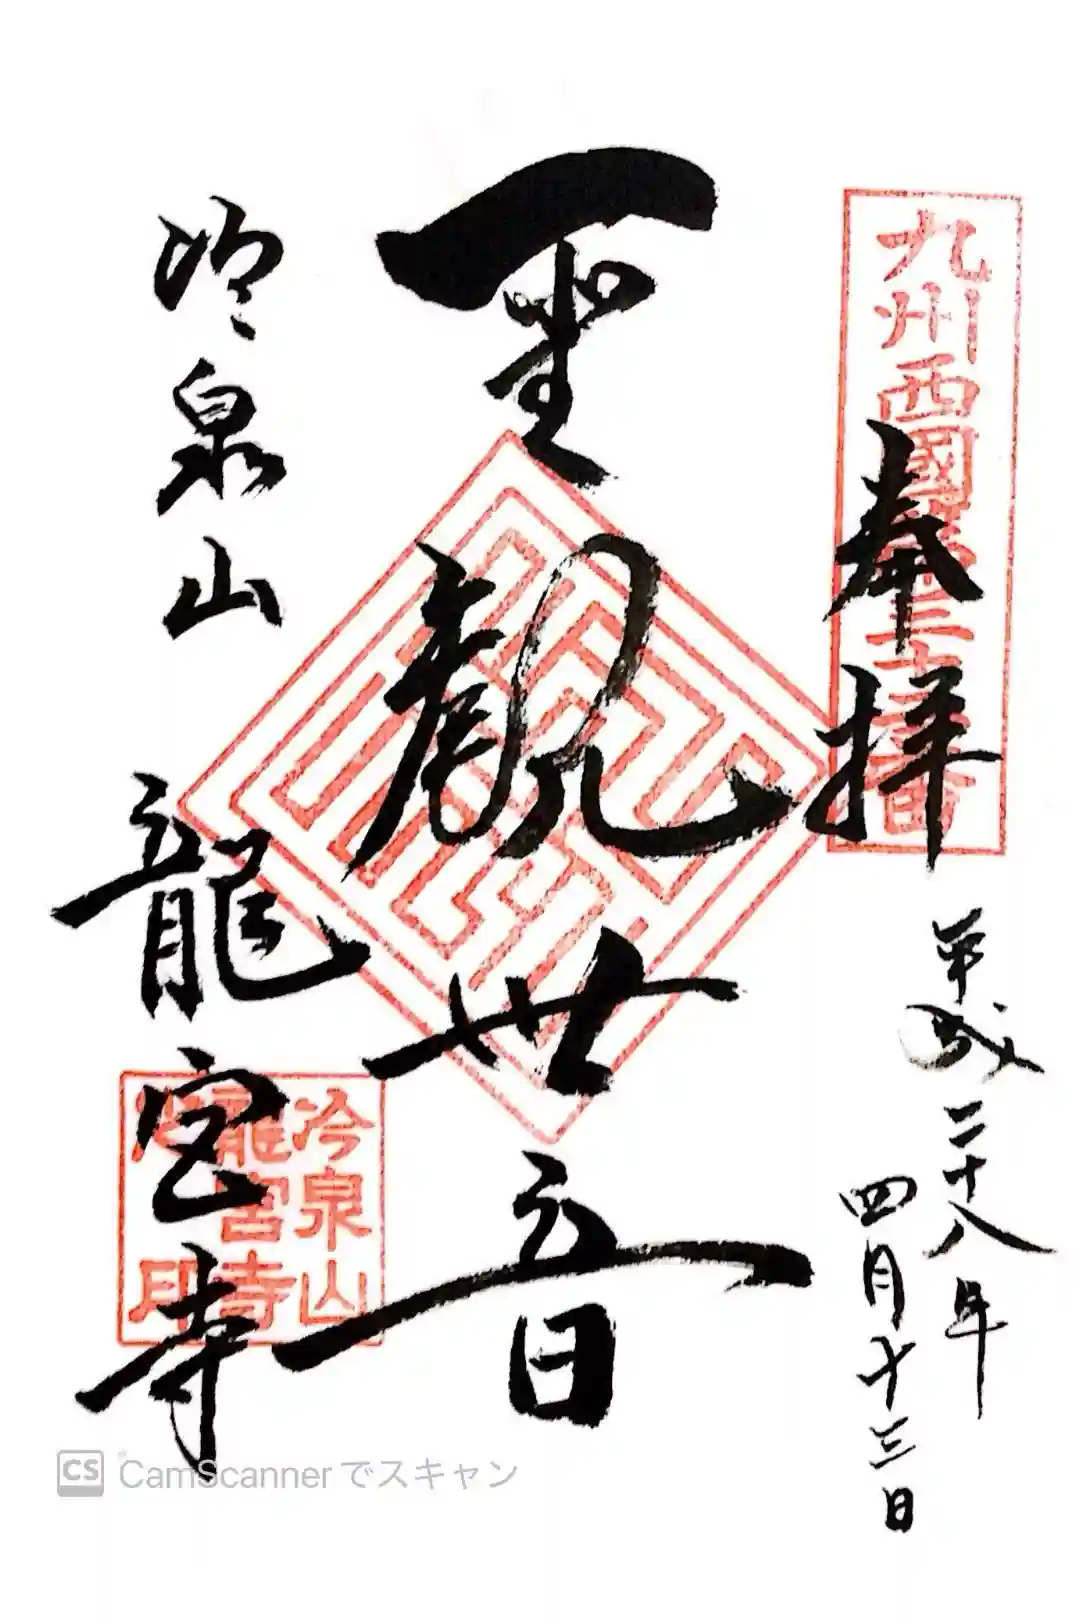 九州西國第三十二番
奉拝
平成二十八年
四月十三日
聖観世音
冷泉山
龍宮寺
冷泉山
龍宮寺
印
CS CamScannerでスキャン